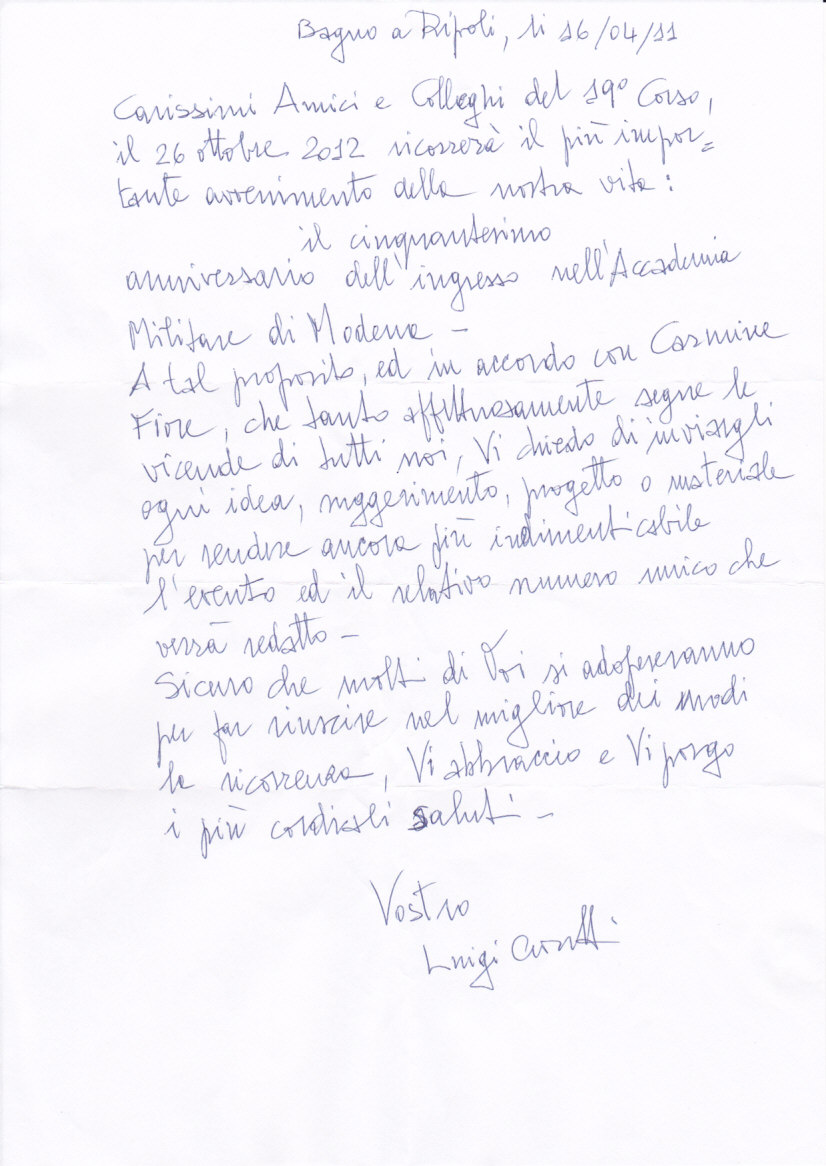 Bagno a Ripoli, li 16/04/11
Carissimi Amici e Colleghi del 19º Corso,
il 26 ottobre 2012 ricorrerà il più impor=
tante avvenimento della nostra vita:
il cinquantesimo
anniversario dell'ingresso nell'Accademia
Militare di Modena -
A tal proposito, ed in accordo con Carmine
Fiore, che tanto affettuosamente segue le
vicende di tutti noi, Vi chiedo di inviargli
ogni idea, suggerimento, progetto o materiale
per rendere ancora più indimenticabile
l'evento ed il relativo numero unico che
verrà redatto -
Sicuro che molti di Voi si adopereranno
per far riuscire nel migliore dei modi
la ricorrenza, Vi abbraccio e Vi porgo
i più cordiali saluti -
Vostro
Luigi